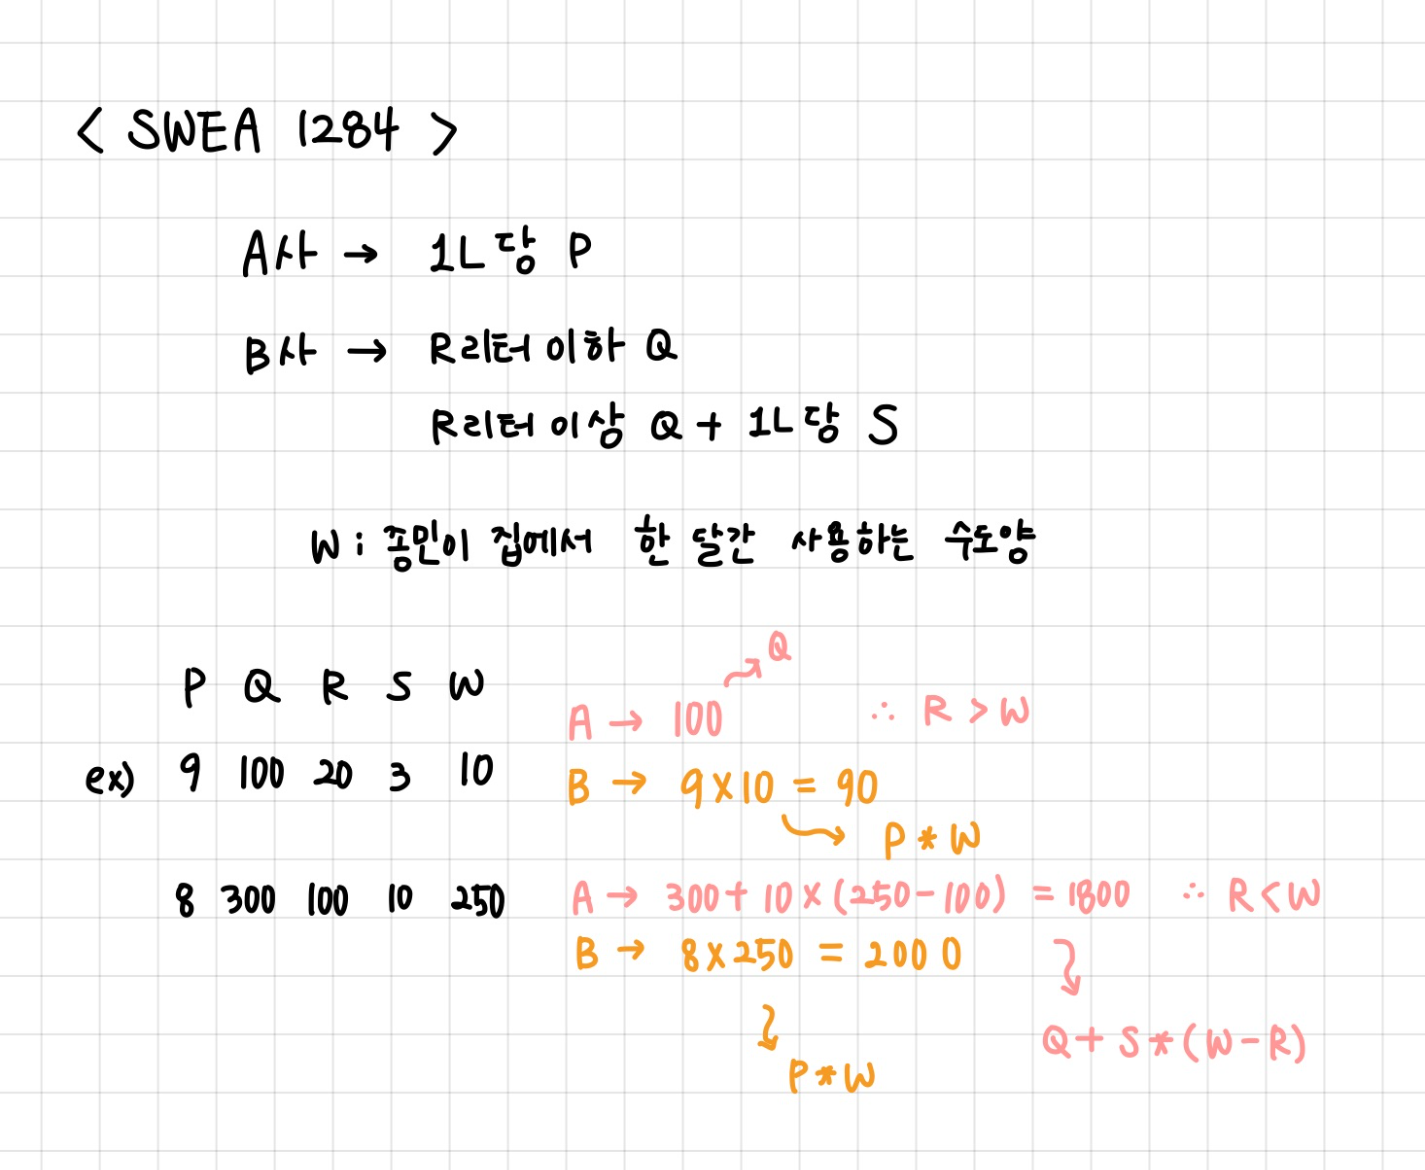 < SWEA 1284 >
A사 → 1L당 P
B사 → R리터 이하 Q
R리터 이상 Q + 1L당 S
W : 종민이 집에서 한 달간 사용하는 수도양
P Q R S W
ex) 9 100 20 3 10
8 300 100 10 250
Q
A → 100 ∴ R > W
B → 9 X 10 = 90
P * W
A → 300 + 10 x (250 - 100) = 1800 ∴ R < W
B → 8 X 250 = 2000
Q + S * (W - R)
P * W